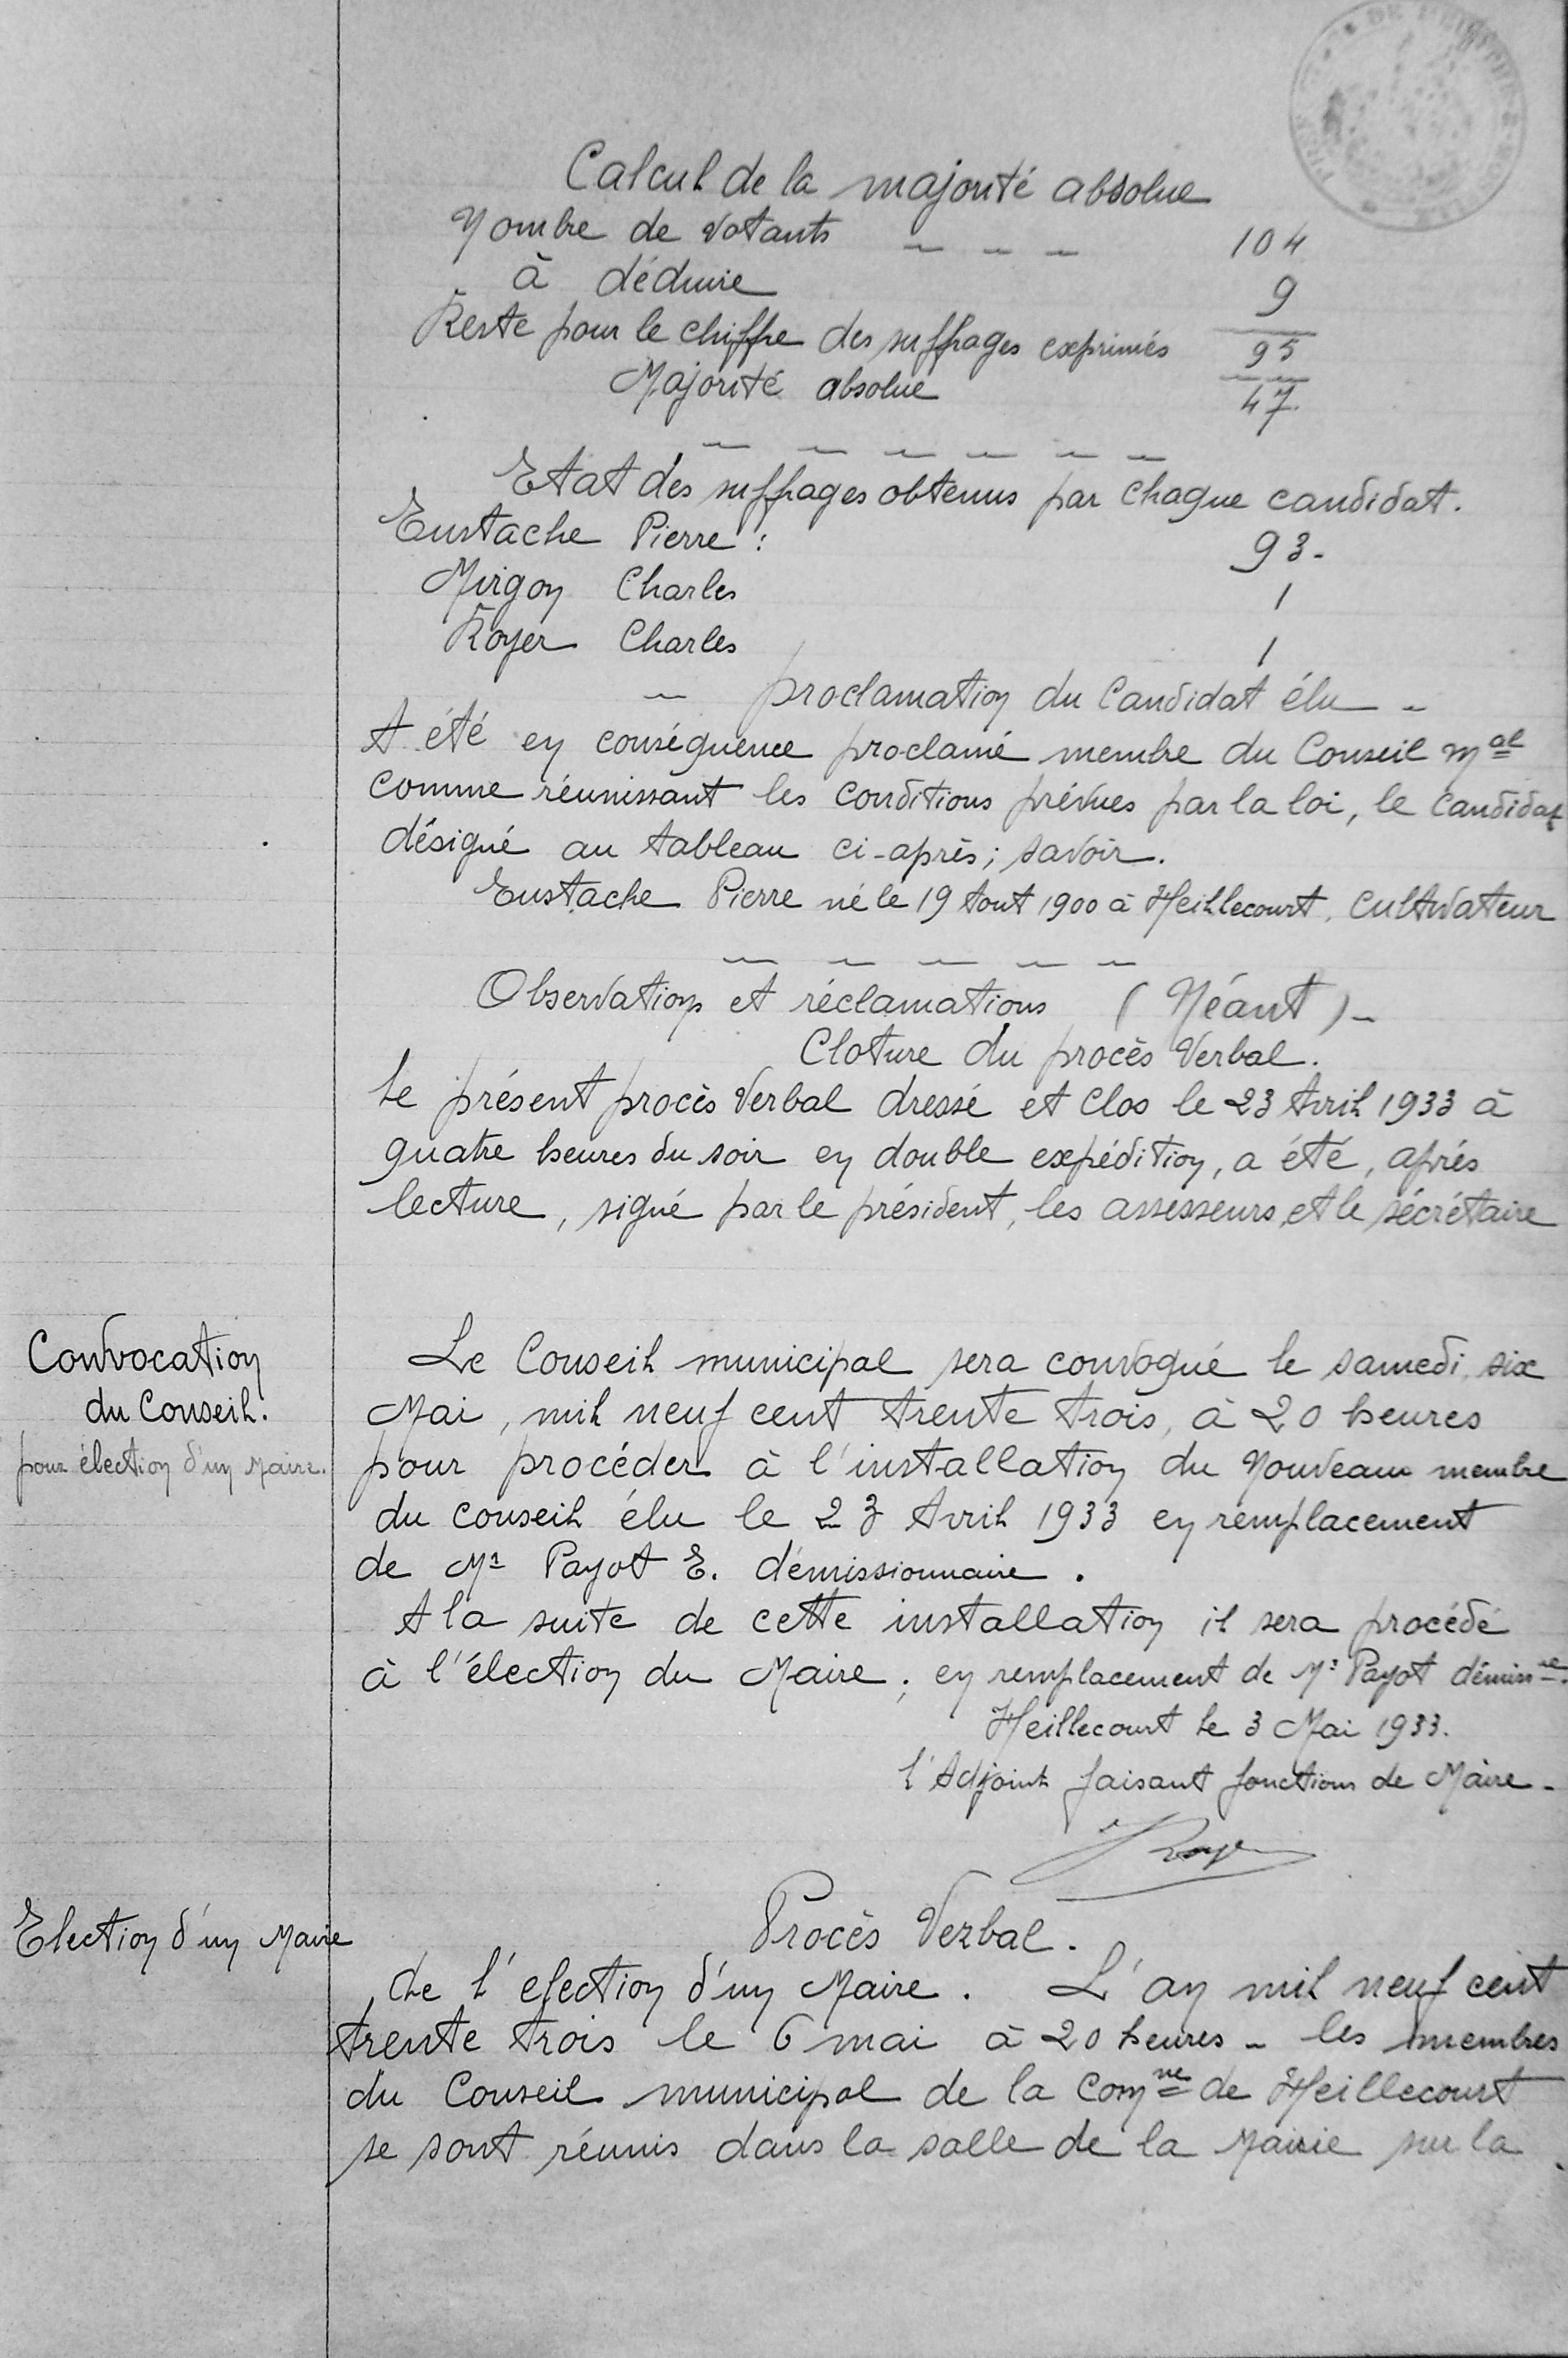 Calcul de la majorité absolue
Nombre de votants 104
à déduire 9
Reste pour le chiffre des suffrages exprimés 95
Majorité absolue 47
Etat des suffrages obtenus par chaque candidat.
Eustache Pierre : 93 -
Mirgon Charles 1
Royer Charles 1
- proclamation du Candidat élu -
A été en conséquence proclamé membre du Conseil mal
comme réunissant les conditions prévues par la loi, le candidat
désigné au tableau ci-après ; savoir.
Eustache Pierre né le 19 Aout 1900 à Heillecourt, cultivateur
Observations et réclamations (Néant) -
Cloture du procès Verbal.
Le présent procès Verbal dressé et clos le 23 Avril 1933 à
quatre heures du soir en double expédition, a été, après
lecture, signé par le président, les assesseurs et le sécrétaire
Convocation
du Conseil.
pour élection d'un Maire.
Le Conseil municipal sera convoqué le samedi six
Mai, mil neuf cent trente trois, à 20 heures
pour procéder à l'installation du Nouveau membre
du conseil élu le 23 Avril 1933 en remplacement
de Mr Payot E. démissionnaire.
A la suite de cette installation il sera procédé
à l'élection du Maire ; en remplacement de Mr Payot démissre.
Heillecourt le 3 Mai 1933.
l'Adjoint faisant fonctions de Maire -
Royer
Election d'un Maire
Procès Verbal.
de l'election d'un Maire. L'an mil neuf cent
trente trois le 6 mai à 20 heures - les membres
du Conseil municipal de la Comne de Heillecourt
se sont réunis dans la salle de la Mairie sur la